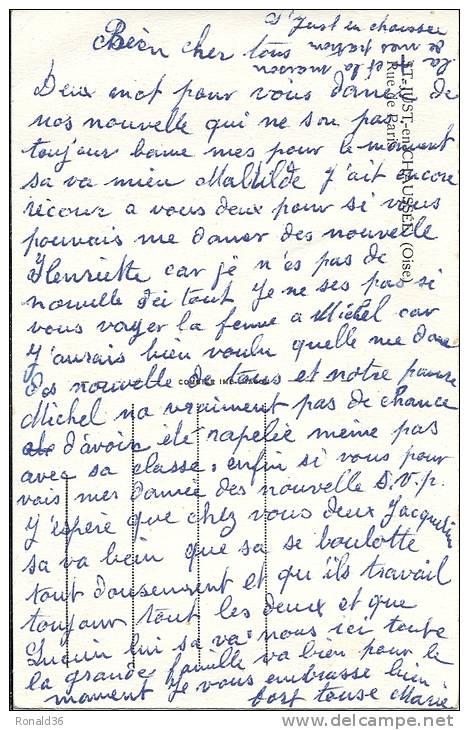 St Just en chaussee
Bien cher tous
la et la maison
Deux mot pour vous donner de
nos nouvelle qui ne son pas
toujour bonne mes pour le moment
sa va mieu Mathilde j'ait encore
récour a vous deux pour si vous
pouvais me donner des nouvelle
Henriette car je n'es pas de
nouvelle dei tout je ne ses pas si
vous voyer la femme a Michel car
j'aurais bien voulu quelle me donne
des nouvelle de tous et notre pauvre
Michel na vraiment pas de chance
d'avoir été rapelée meme pas
avec sa classe, enfin si vous pour
vais mes donnée des nouvelle S.V.p.
j'espére que chez vous deux Jacqueline
sa va bein que sa se boulotte
tout dousement et qu'ils travail
toujour tout les deux et que
Lucien lui sa va nous ici toute
la grande famille va bien pour le
moment je vous embrasse bien
fort touse Marie
ST-JUST-en-CHAUSSÉE (Oise)
Rue de Paris
Ronald36
www.delcampe.net